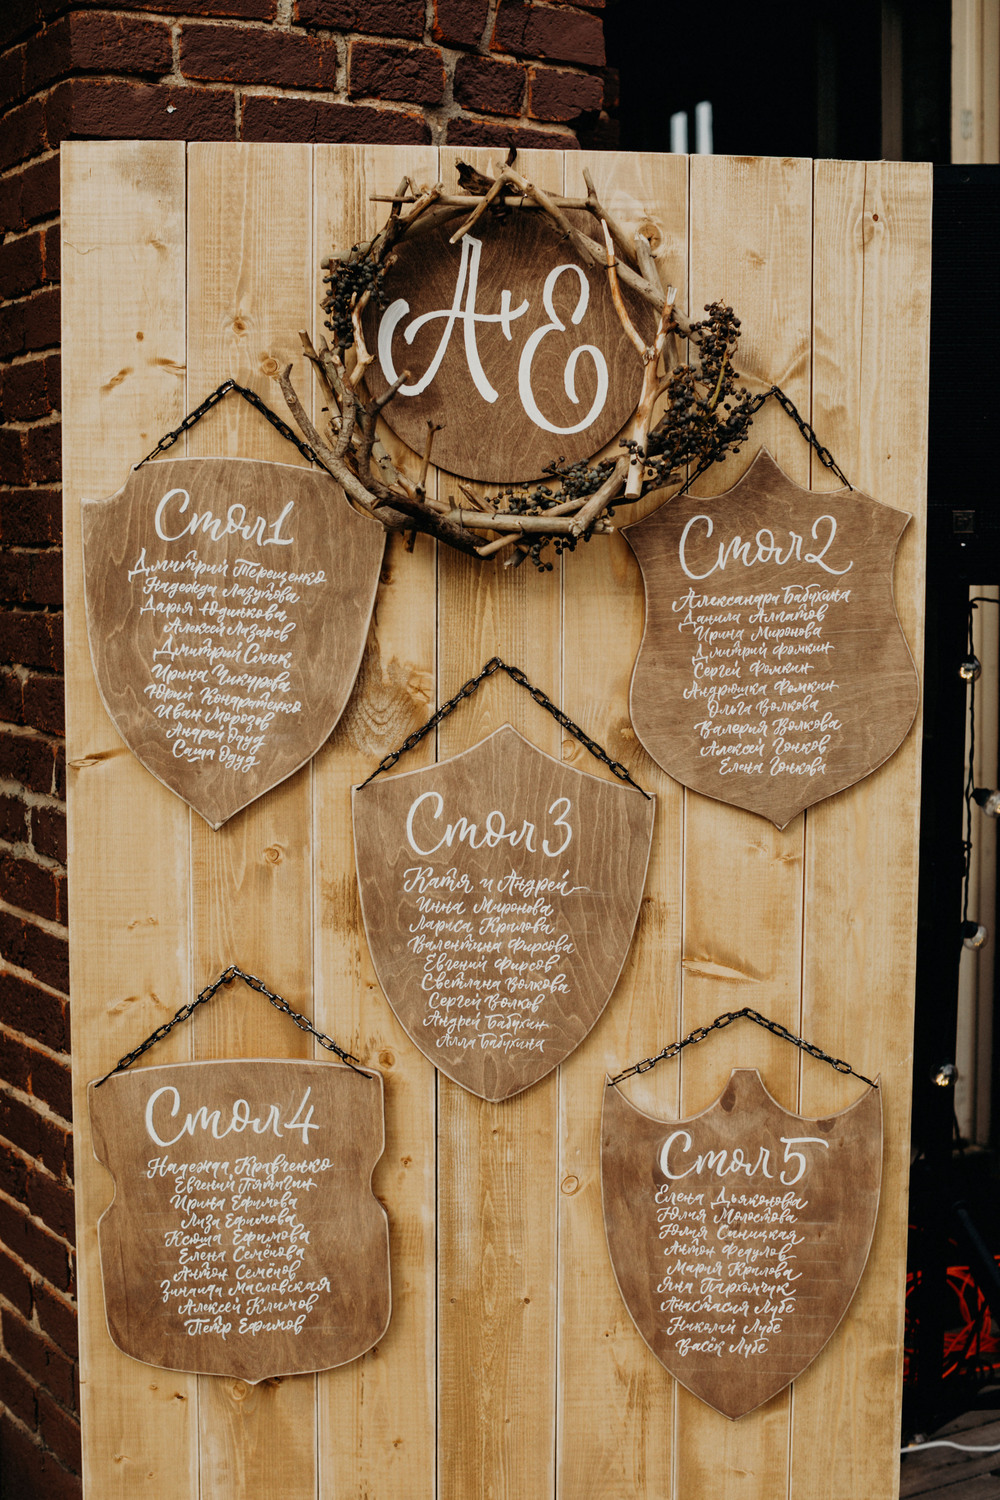 А+Е
Стол 1
Дмитрий Терещенко
Надежда Лазутова
Дарья Юдинкова
Алексей Лазарев
Дмитрий Смык
Ирина Чикурова
Юрий Кондратенко
Иван Морозов
Андрей Одуд
Саша Одуд
Стол 2
Александра Бабухина
Данила Алпатов
Ирина Миронова
Дмитрий Фомкин
Сергей Фомкин
Андрюшка Фомкин
Ольга Волкова
Валерия Волкова
Алексей Гонков
Елена Гонкова
Стол 3
Катя и Андрей
Инна Миронова
Лариса Крылова
Валентина Фирсова
Евгений Фирсов
Светлана Волкова
Сергей Волков
Андрей Бабухин
Алла Бабухина
Стол 4
Надежда Кравченко
Евгений Пятыгин
Ирина Ефимова
Лиза Ефимова
Ксюша Ефимова
Елена Семёнова
Антон Семёнов
Зинаида Масловская
Алексей Климов
Петр Ефимов
Стол 5
Елена Дьяконова
Юлия Молостова
Юлия Синицкая
Антон Федулов
Мария Крылова
Яна Пархомчук
Анастасия Лубе
Николай Лубе
Васёк Лубе